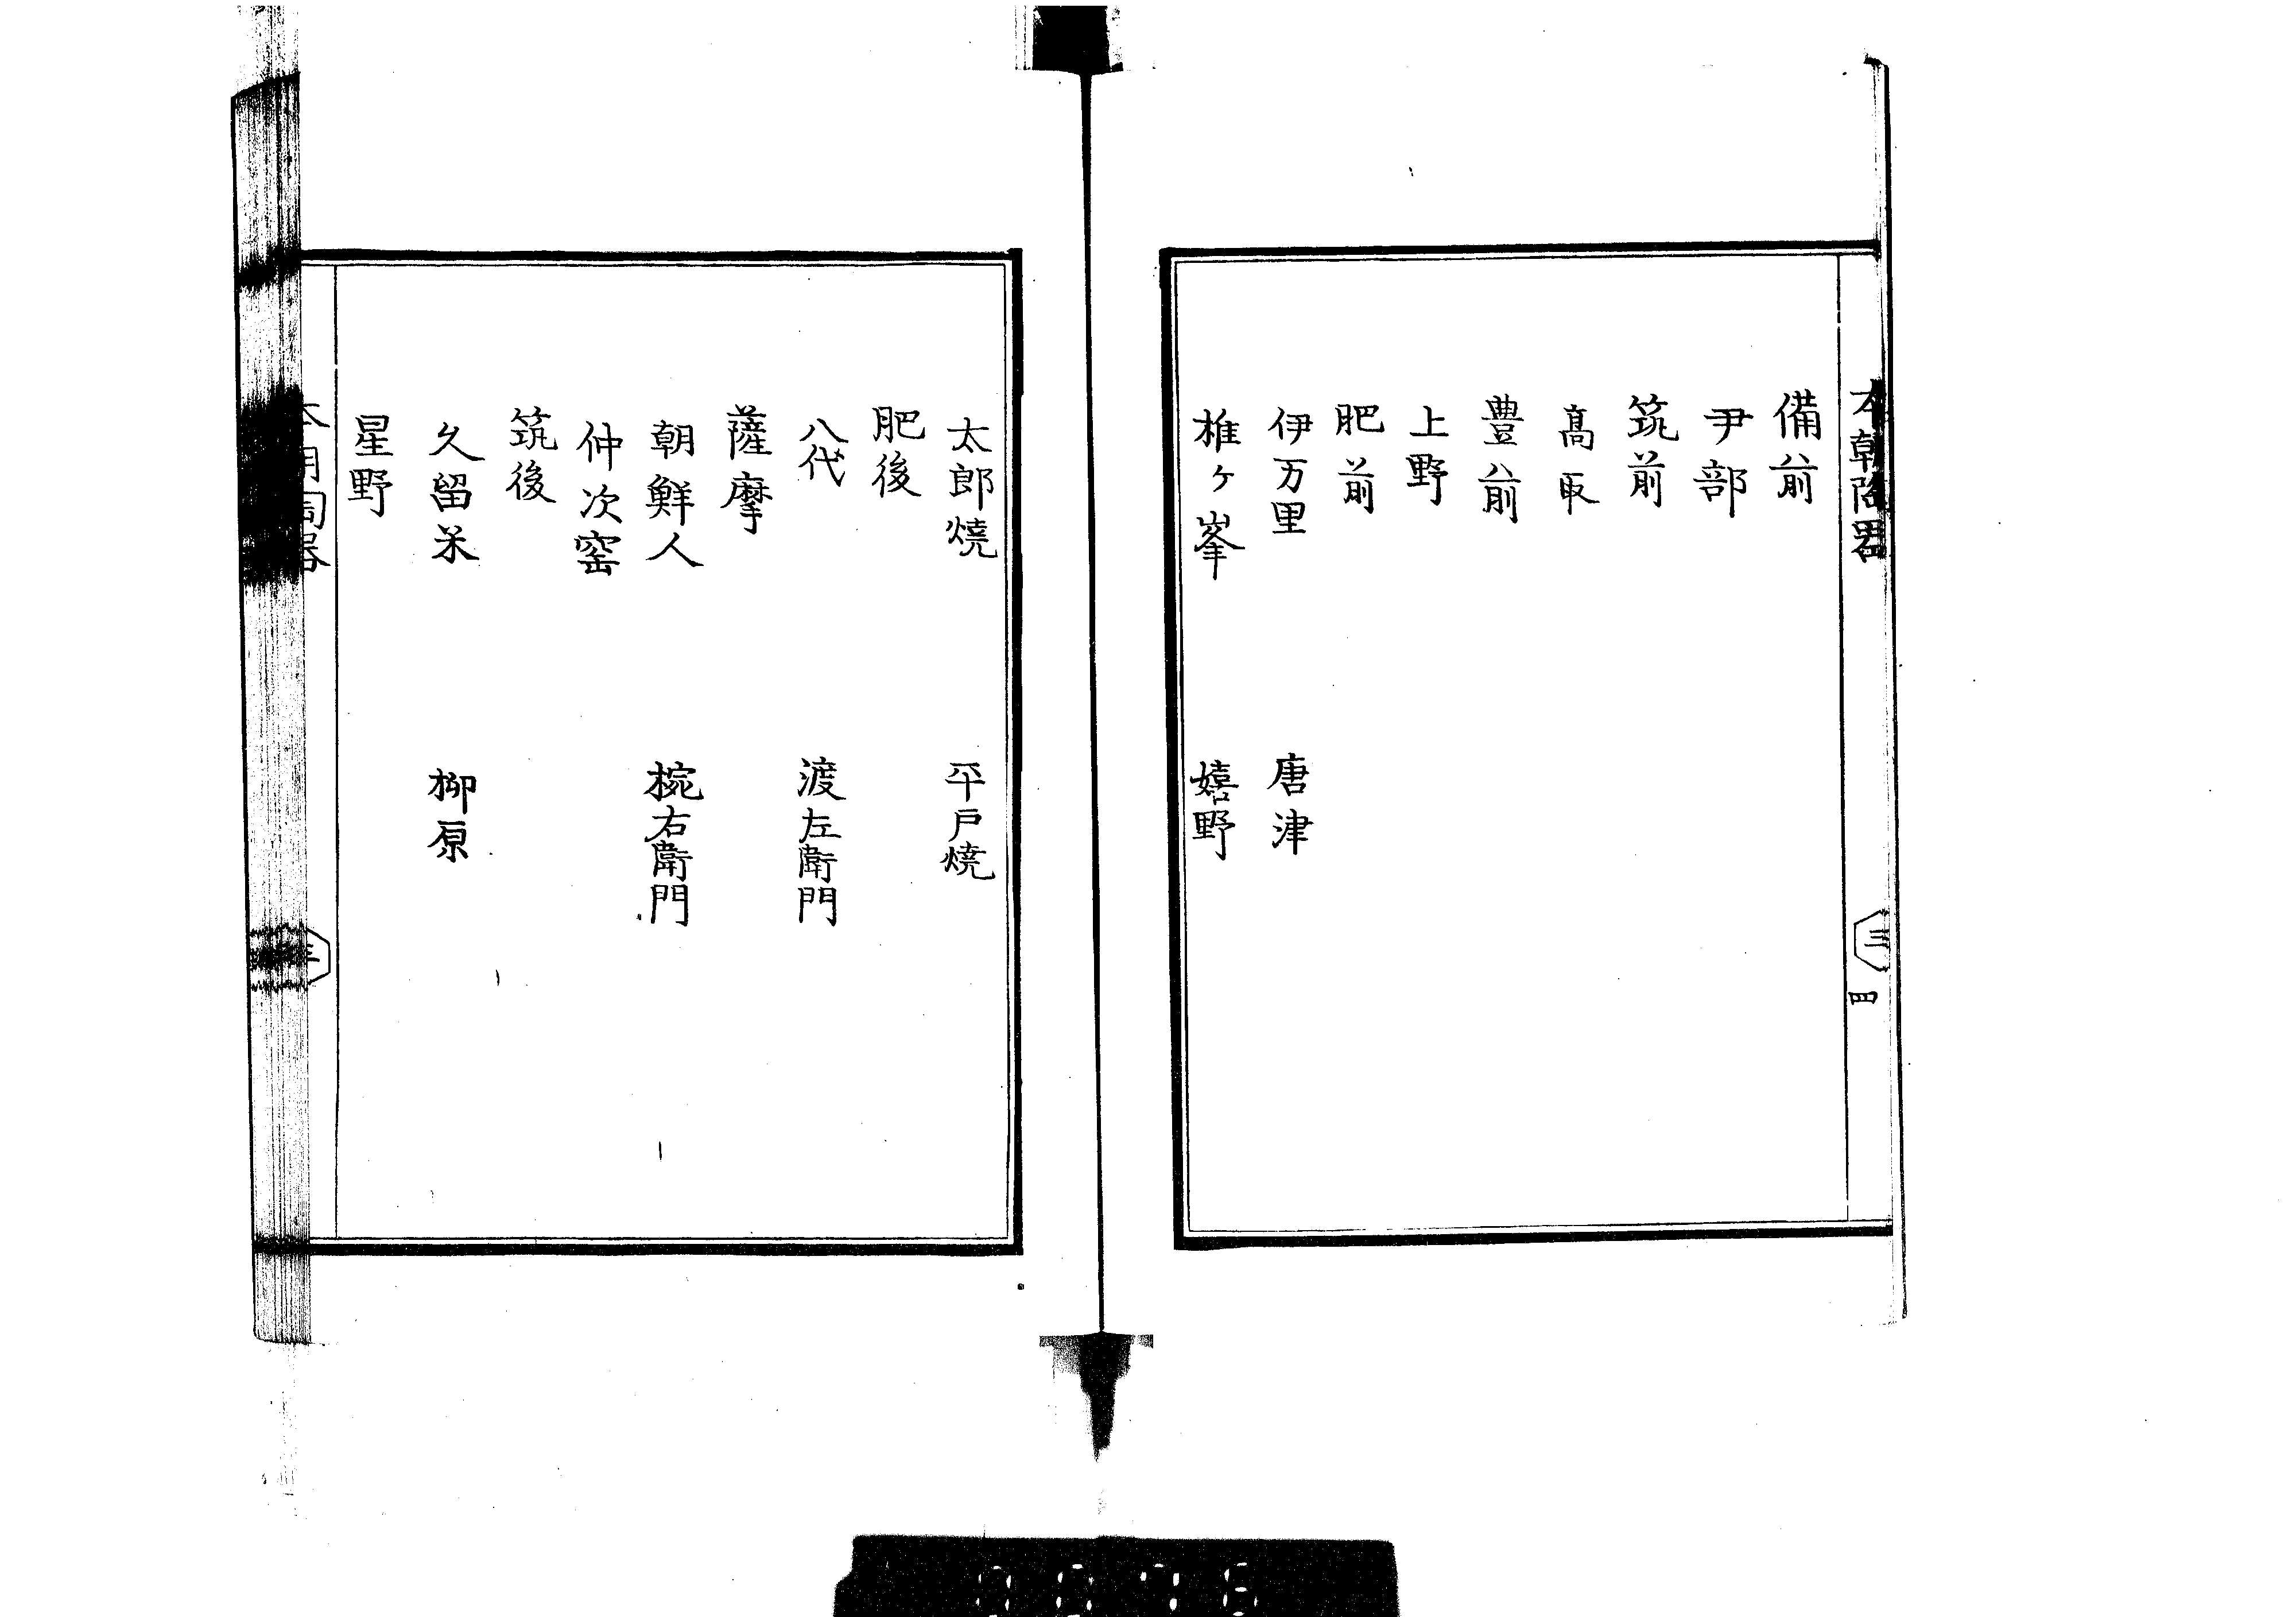 本朝陶器
三
四
備前
尹部
筑前
髙取
豊前
上野
肥前
伊万里 唐津
椎ヶ峯 嬉野
太郎焼 平戸焼
肥後
八代 渡左衛門
薩摩
朝鮮人 椀右衛門
仲次窑
筑後
久留米 柳原
星野